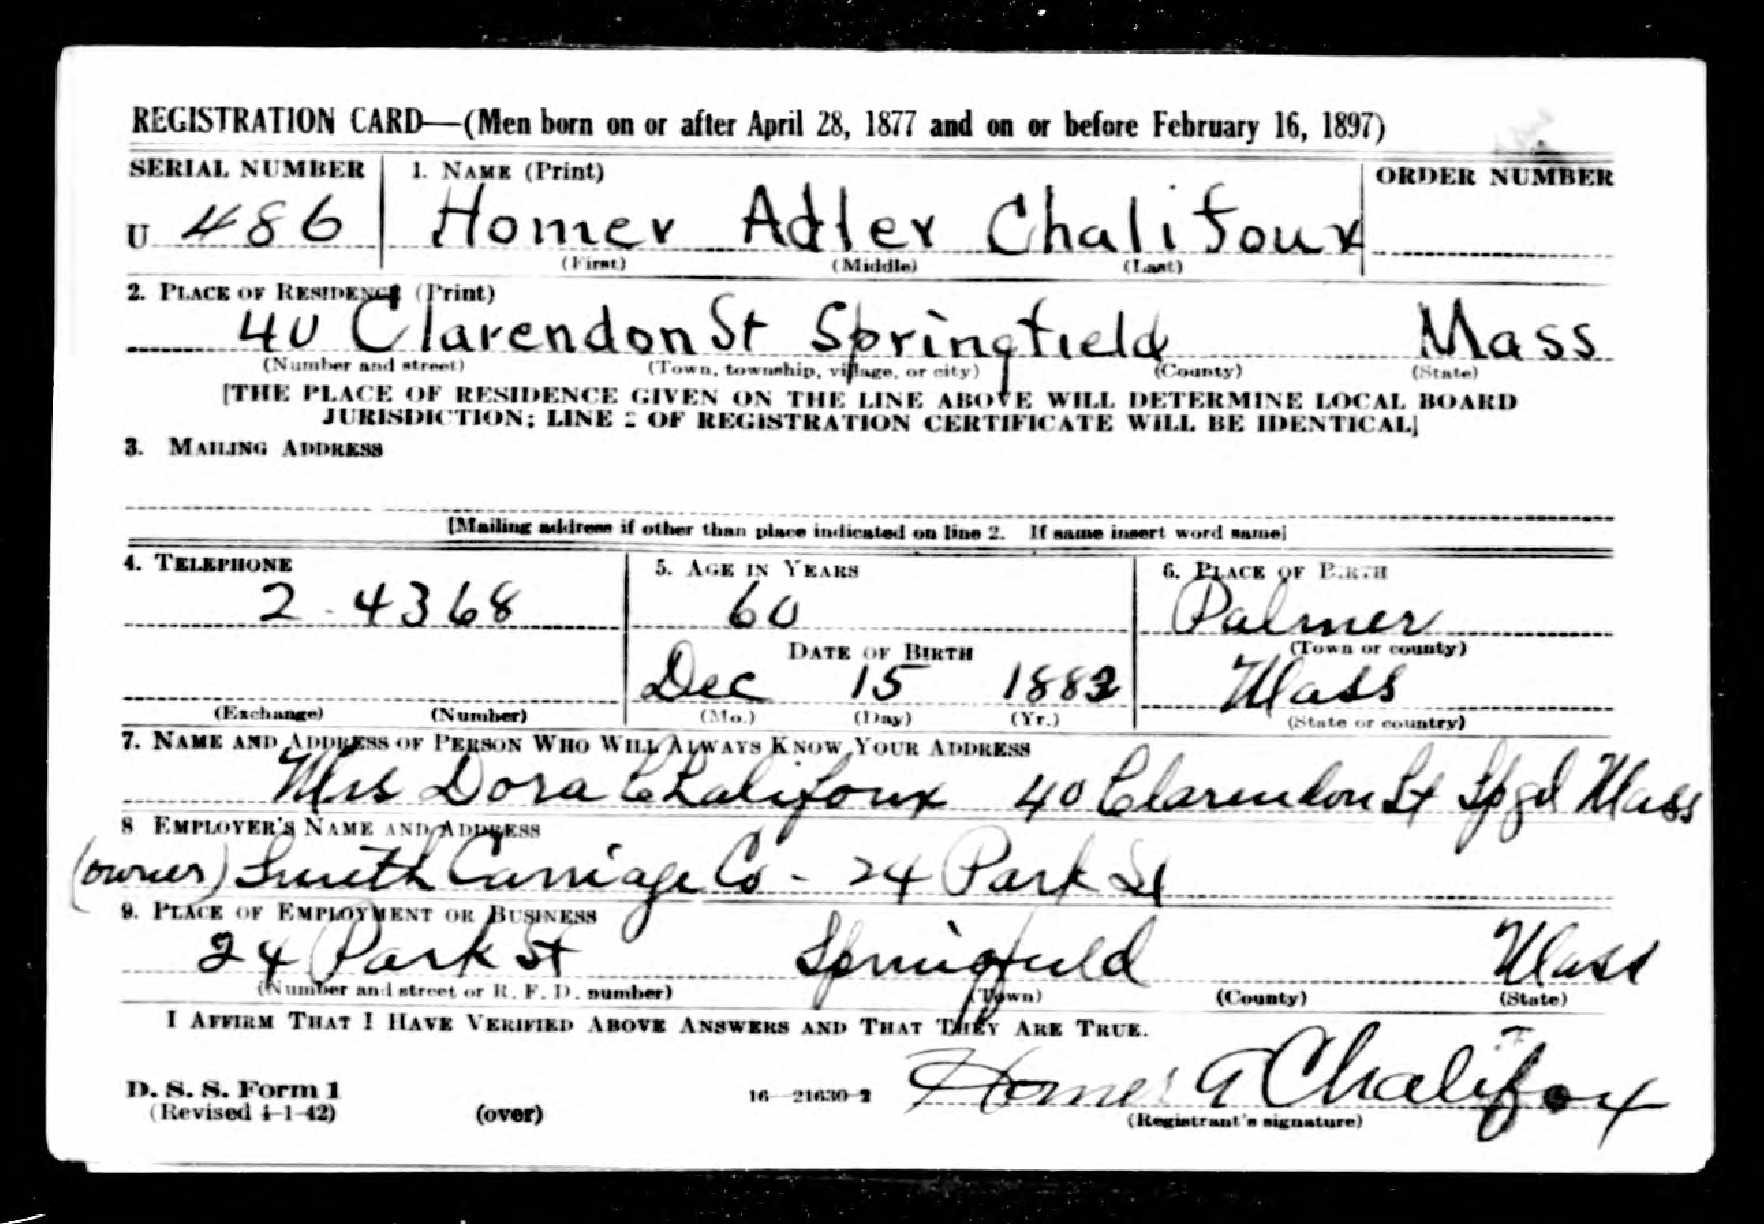 REGISTRATION CARD—(Men born on or after April 28, 1877 and on or before February 16, 1897)
SERIAL NUMBER 1. NAME (Print) ORDER NUMBER
U 486 Homer Adler Chalifoux
(First) (Middle) (Last)
2. PLACE OF RESIDENCE (Print)
40 Clarendon St Springfield Mass
(Number and street) (Town, township, village, or city) (County) (State)
[THE PLACE OF RESIDENCE GIVEN ON THE LINE ABOVE WILL DETERMINE LOCAL BOARD
JURISDICTION; LINE 2 OF REGISTRATION CERTIFICATE WILL BE IDENTICAL]
3. MAILING ADDRESS
[Mailing address if other than place indicated on line 2. If same insert word same]
4. TELEPHONE 5. AGE IN YEARS 6. PLACE OF BIRTH
2-4368 60 Palmer
DATE OF BIRTH (Town or county)
Dec 15 1882 Mass
(Exchange) (Number) (Mo.) (Day) (Yr.) (State or country)
7. NAME AND ADDRESS OF PERSON WHO WILL ALWAYS KNOW YOUR ADDRESS
Mrs Dora Chalifoux 40 Clarendon St Spgd Mass
8 EMPLOYER'S NAME AND ADDRESS
(owner) Smith Carriage Co - 24 Park St
9. PLACE OF EMPLOYMENT OR BUSINESS
24 Park St Springfield Mass
(Number and street or R. F. D. number) (Town) (County) (State)
I AFFIRM THAT I HAVE VERIFIED ABOVE ANSWERS AND THAT THEY ARE TRUE.
D. S. S. Form 1
(Revised 4-1-42) (over) 16—21630-2 Homer A Chalifoux
(Registrant's signature)